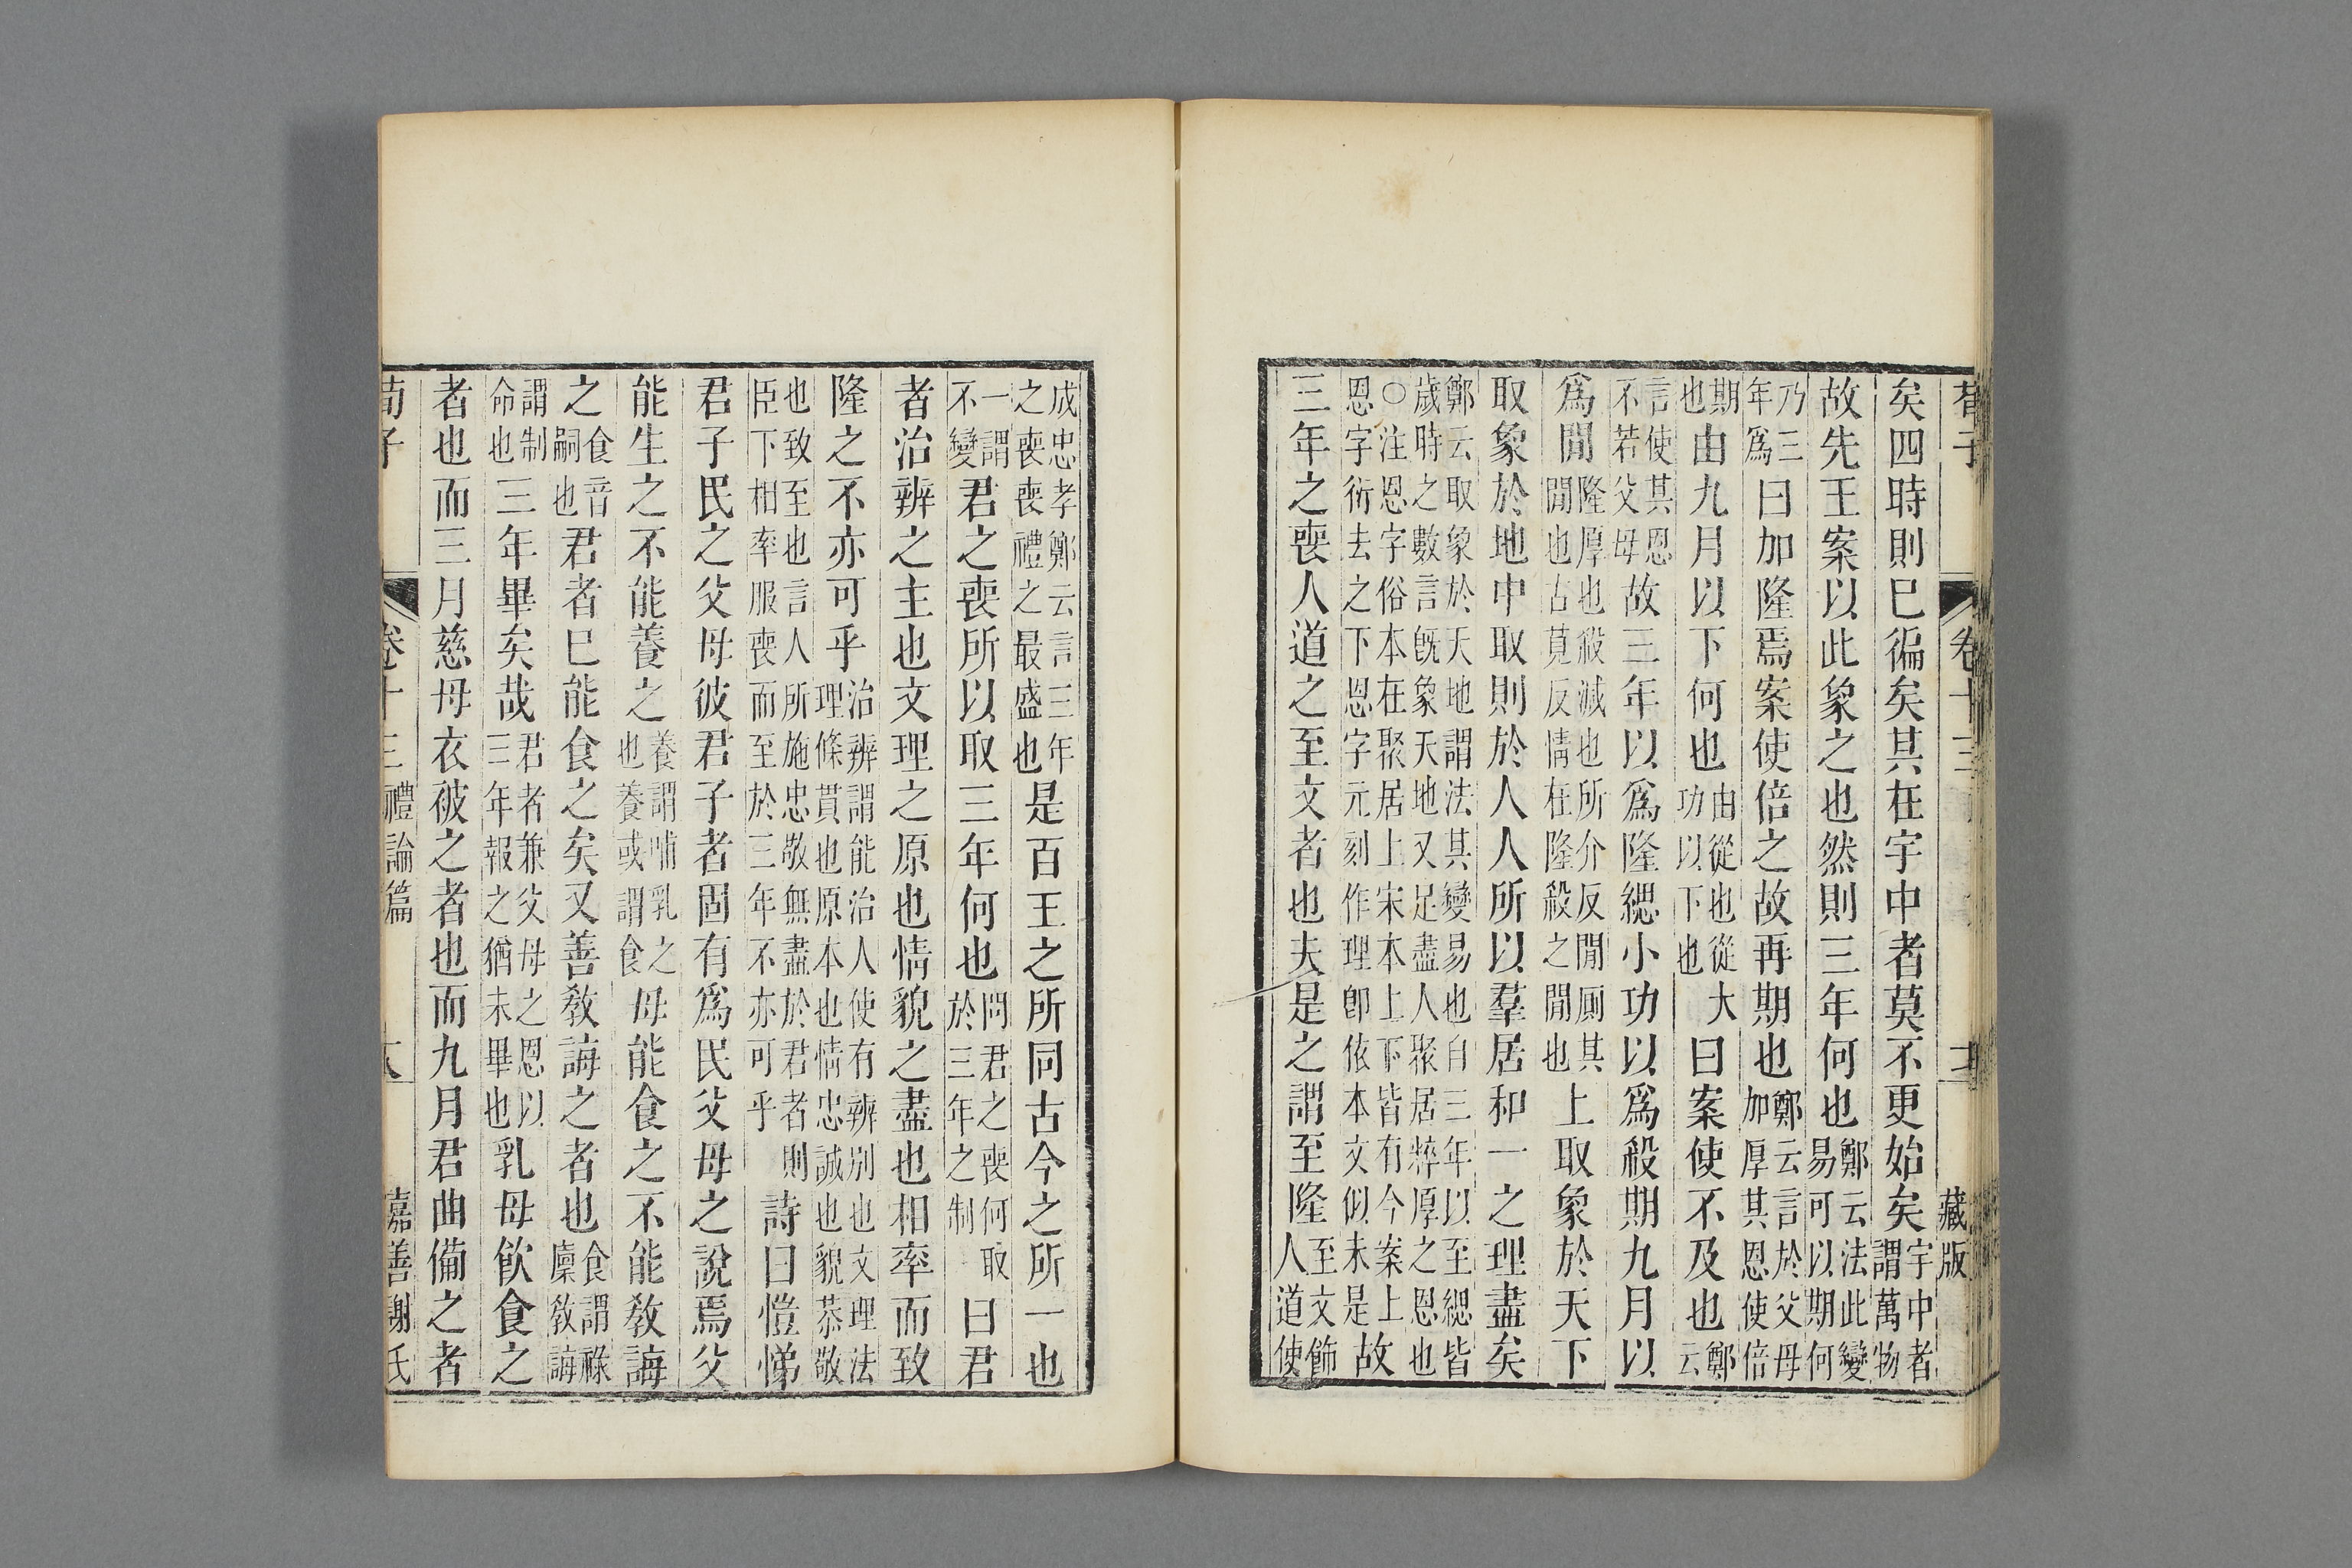 荀子　卷十三　藏版
矣四時則巳徧矣其在宇中者莫不更始矣宇中者謂萬物
故先王案以此象之也然則三年何也鄭云法此變易可以期何
乃三年爲曰加隆焉案使倍之故再期也鄭云言於父母加厚其恩使倍
期也由九月以下何也由從也從大功以下也曰案使不及也鄭云
言使其恩不若父母故三年以爲隆緦小功以爲殺期九月以
爲閒隆厚也殺減也所介反閒厠其閒也古莧反情在隆殺之閒也上取象於天下
取象於地中取則於人人所以羣居和一之理盡矣
鄭云取象於天地謂法其變易也自三年以至緦皆歲時之數言旣象天地又足盡人聚居粹厚之恩也
○注恩字俗本在聚居上宋本上下皆有今案上恩字衍去之下恩字元刻作理卽依本文似未是故
三年之喪人道之至文者也夫是之謂至隆至文飾人道使
成忠孝鄭云言三年之喪喪禮之最盛也是百王之所同古今之所一也
一謂不變君之喪所以取三年何也問君之喪何取於三年之制曰君
者治辨之主也文理之原也情貌之盡也相率而致
隆之不亦可乎治辨謂能治人使有辨別也文理法理條貫也原本也情忠誠也貌恭敬
也致至也言人所施忠敬無盡於君者則臣下相率服喪而至於三年不亦可乎詩曰愷悌
君子民之父母彼君子者固有爲民父母之說焉父
能生之不能養之養謂哺乳之也養或謂食母能食之不能教誨
之食音嗣也君者巳能食之矣又善教誨之者也食謂祿廩教誨
謂制命也三年畢矣哉君者兼父母之恩以三年報之猶未畢也乳母飲食之
者也而三月慈母衣被之者也而九月君曲備之者
荀子　卷十三禮論篇　嘉善謝氏